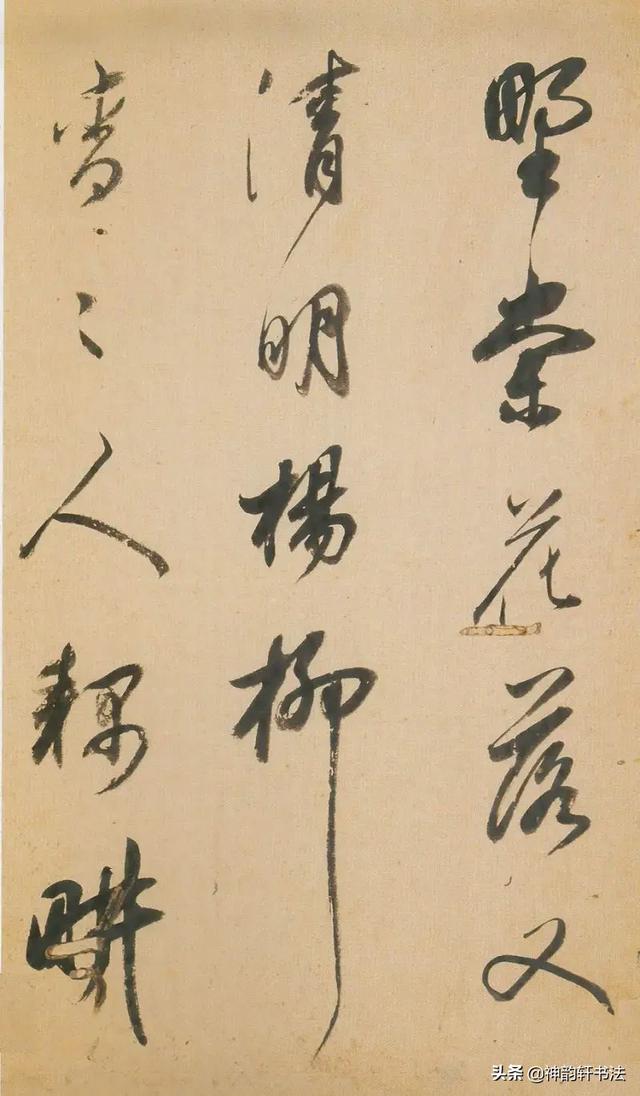 野棠花落又
清明楊柳
青〻人耦畊
头条 @神韵轩书法